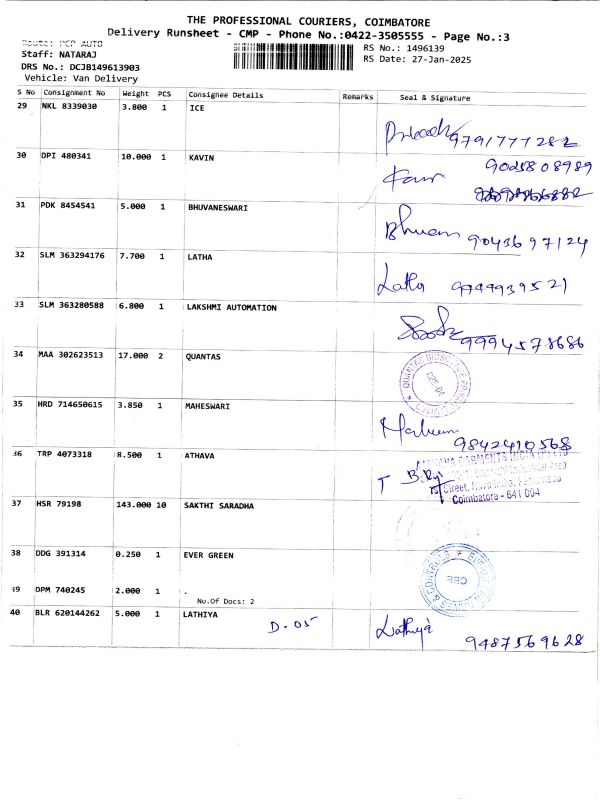 THE PROFESSIONAL COURIERS, COIMBATORE
Delivery Runsheet - CMP - Phone No.:0422-3505555 - Page No.:3
Route: PCP AUTO
Staff: NATARAJ
RS No.: 1496139
DRS No.: DCJB149613903
RS Date: 27-Jan-2025
Vehicle: Van Delivery
S No Consignment No Weight PCS Consignee Details Remarks Seal & Signature
29 NKL 8339030 3.800 1 ICE
9791777282
30 DPI 480341 10.000 1 KAVIN
9025808989
31 PDK 8454541 5.000 1 BHUVANESWARI
9043697124
32 SLM 363294176 7.700 1 LATHA
Latha
33 SLM 363280588 6.800 1 LAKSHMI AUTOMATION
9994578686
34 MAA 302623513 17.000 2 QUANTAS
35 HRD 714650615 3.850 1 MAHESWARI
9842410568
36 TRP 4073318 8.500 1 ATHAVA
Coimbatore - 641 004
37 HSR 79198 143.000 10 SAKTHI SARADHA
38 DDG 391314 0.250 1 EVER GREEN
CBE
39 DPM 740245 2.000 1 .
No.Of Docs: 2
40 BLR 620144262 5.000 1 LATHIYA
D-05 Lathiya
9487569628